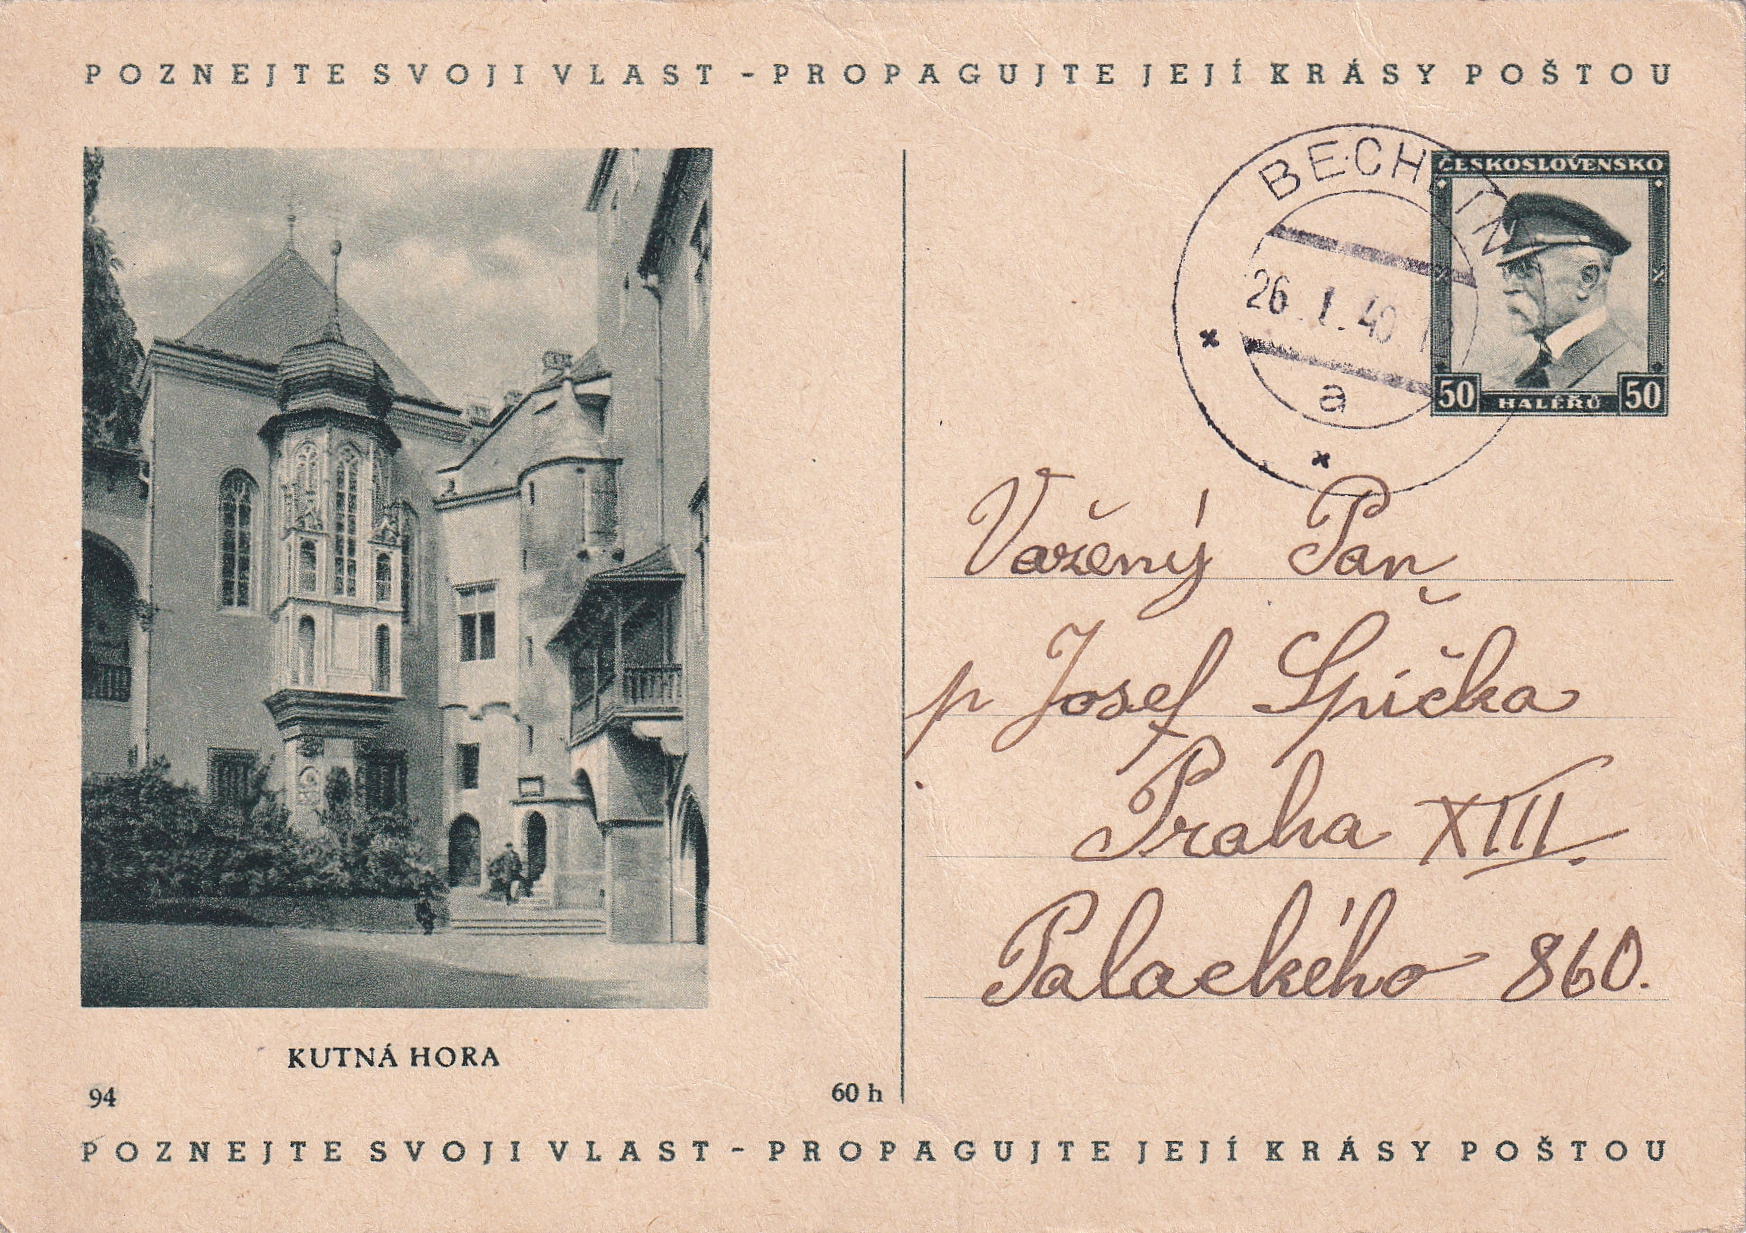 POZNEJTE SVOJI VLAST - PROPAGUJTE JEJÍ KRÁSY POŠTOU
ČESKOSLOVENSKO
26. I. 40
a
50 HALÉŘŮ 50
Važený Pan
p Josef Špička
Praha XIII.
Palackého 860.
KUTNÁ HORA
94
60 h
POZNEJTE SVOJI VLAST - PROPAGUJTE JEJÍ KRÁSY POŠTOU